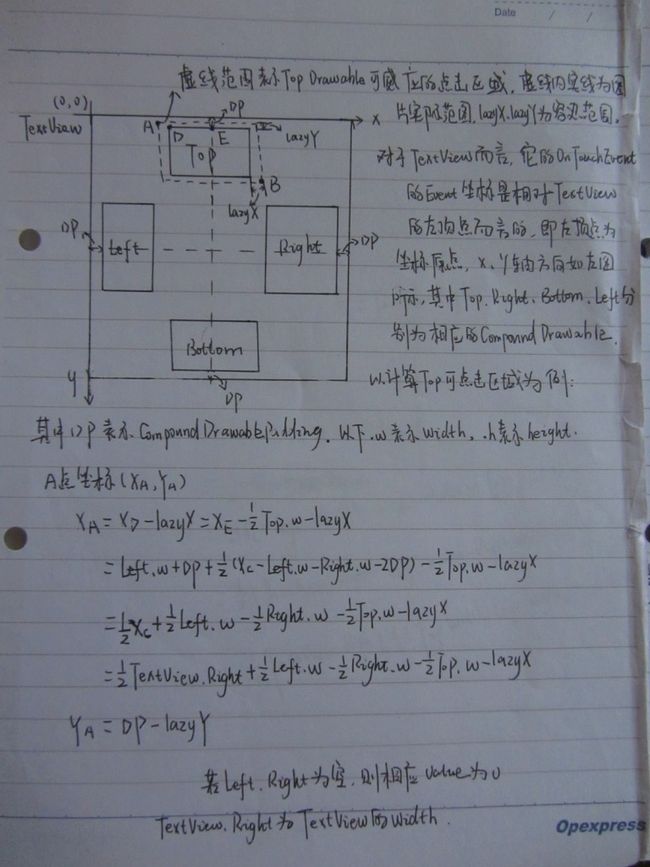 Date / /
虚线范围表示Top Drawable可感应的点击区域,虚线内实线为图
片实际范围,lazyX.lazyY为容災范围.
(0,0)
DP
x
TextView
A
D
E
lazyY
Top
B
lazyX
对于TextView而言,它的OnTouchEvent
的Event坐标是相对TextView
的左顶点而言的,即左顶点为
坐标原点,x.y轴方向如左图
所示,其中Top.Right.Bottom.Left分
别为相应的Compound Drawable.
DP
Left
Right
DP
Bottom
y
DP
以计算Top可点击区域为例:
其中DP表示CompoundDrawablePadding.以下.w表示width,.h表示height.
A点坐标(XA,YA)
XA=XD-lazyX=XE-1/2Top.w-lazyX
=Left.w+DP+1/2(Xc-Left.w-Right.w-2DP)-1/2Top.w-lazyX
=1/2Xc+1/2Left.w-1/2Right.w-1/2Top.w-lazyX
=1/2TextView.Right+1/2Left.w-1/2Right.w-1/2Top.w-lazyX
YA=DP-lazyY
若Left.Right为空,则相应value为0
TextView.Right为TextView的width.
Opexpress